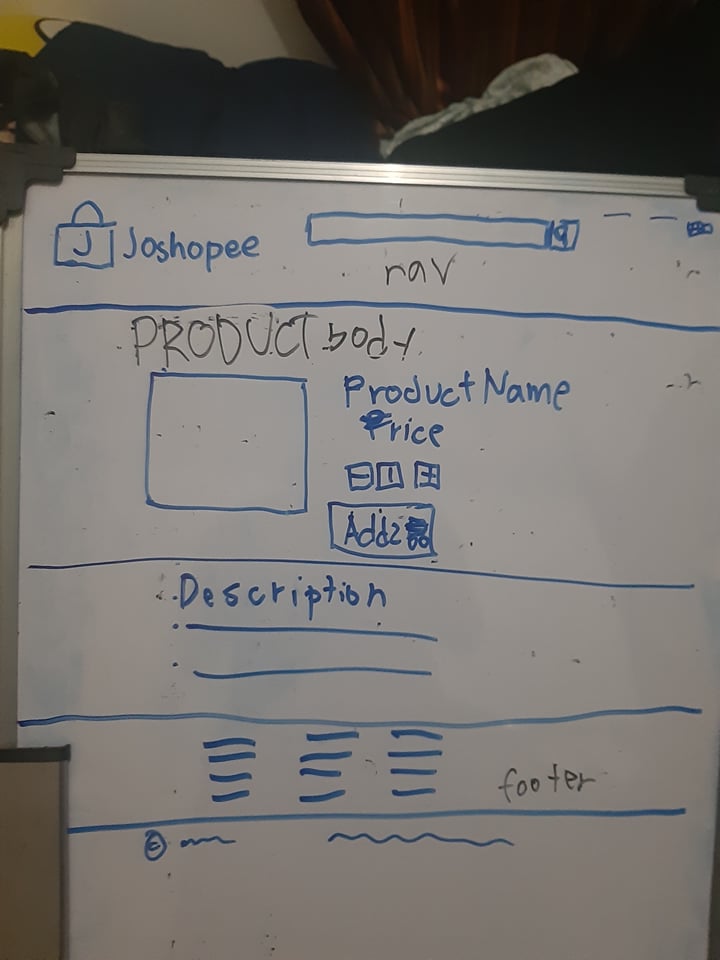 J Joshopee
nav
PRODUCT body
Product Name
Price
- 1 +
Add2
Description
footer
©